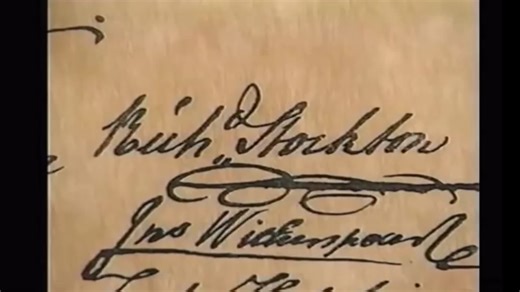 Richd. Stockton
Jno Witherspoon